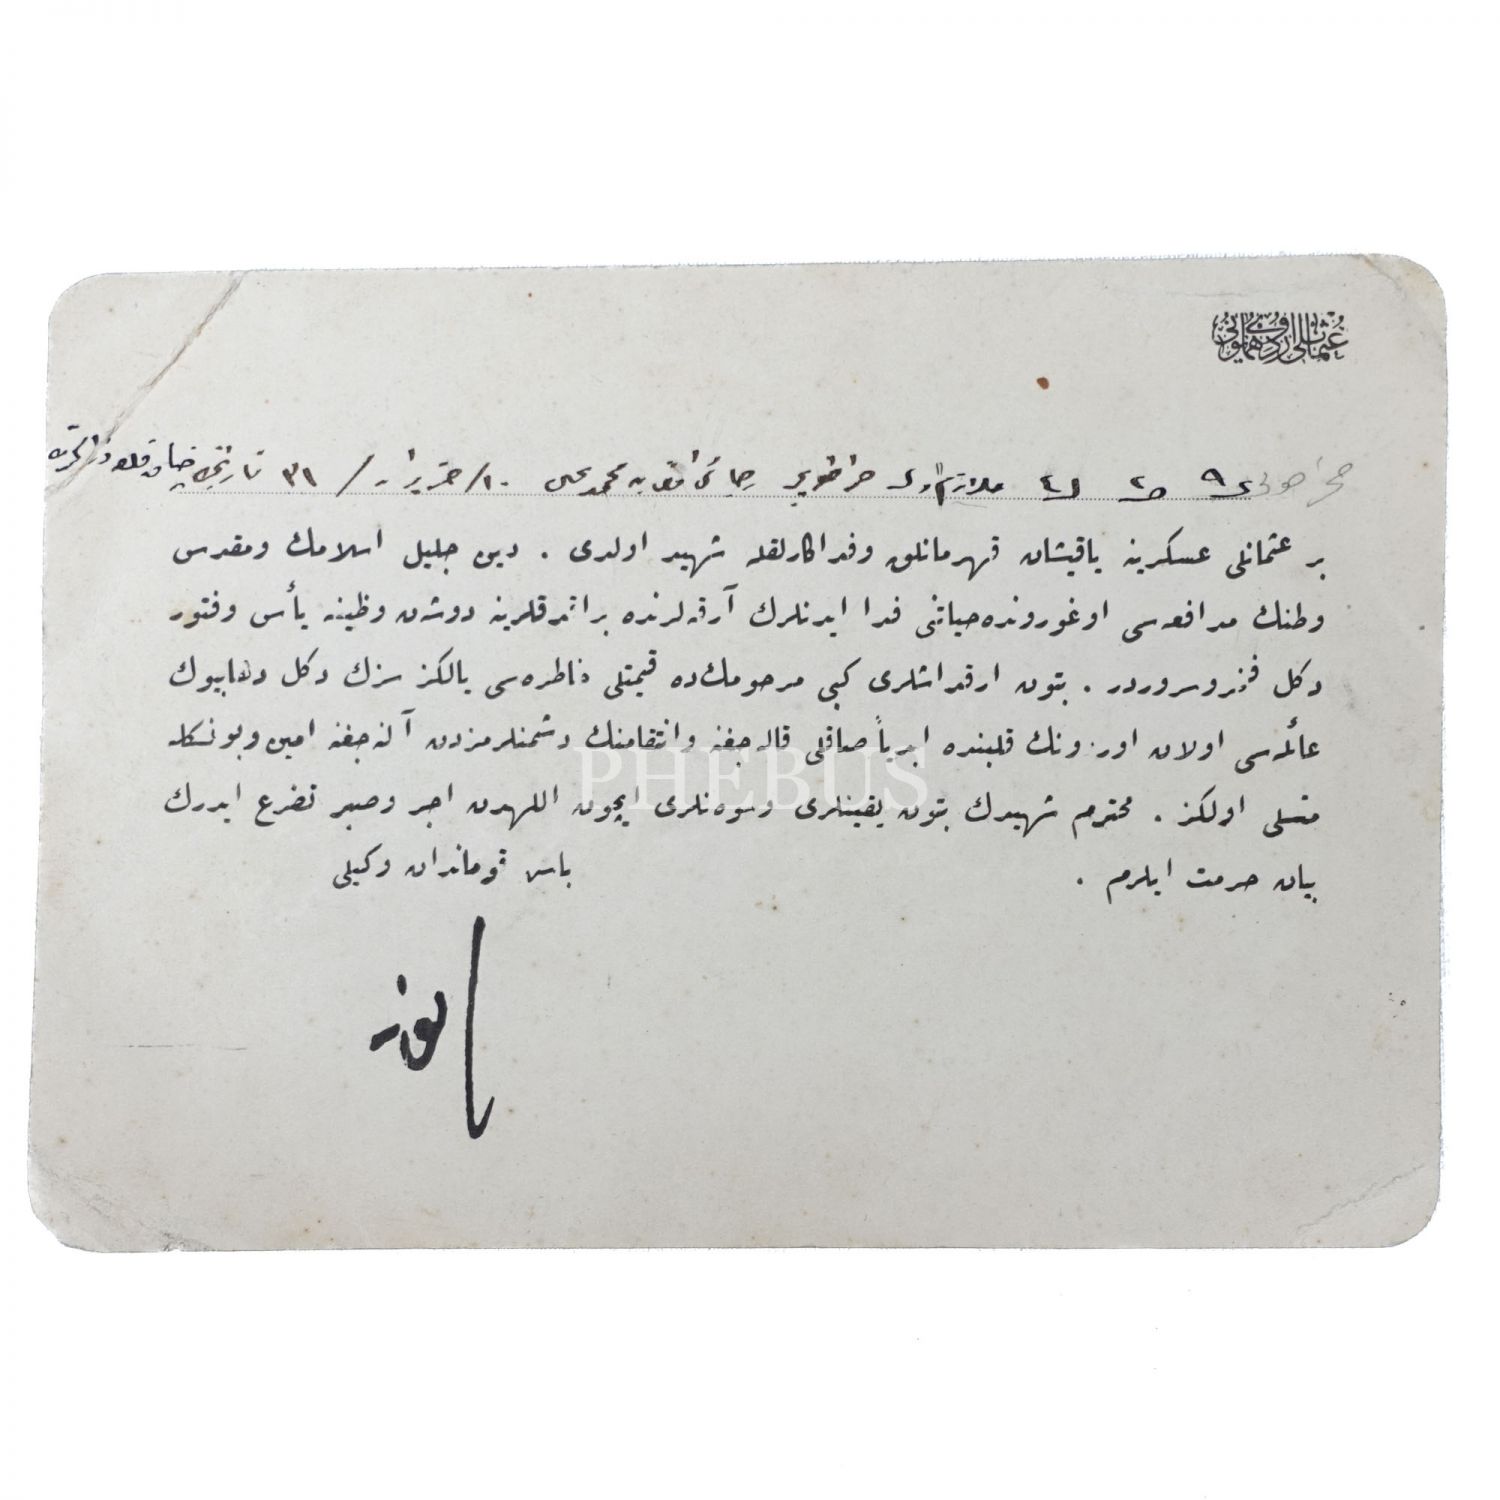 عثمانلی اردوی همایونی
٩ ٢ ٤ ملازم اول ١٠/ حزیران / ٣١
بر عثمانلی عسكرینه یاقیشان قهرمانلق وفداكارلقله شهید اولدی . دین جلیل اسلامك ومقدس
وطنك مدافعه‌سی اوغورونده حیاتنی فدا ایدنلرك آرقه‌لرنده براقدقلرینه دوشن وظیفه یأس وفتور
دكل فخر وسروردر . بتون ارقداشلری كبی مرحومك ده قیمتلی خاطره‌سی یالكز سزك دكل دها بیوك
عائله‌سی اولان اوردونك قلبنده ابدیاً صاقلی قاله‌جغنه وانتقامنك دشمنلرمزدن آلنه‌جغنه امین وبونكله
متسلی اولكز . محترم شهیدك بتون یقینلری وسوه‌نلری ایچون اللهدن اجر وصبر تضرع ایدرك
بیان حرمت ایلرم .
باش قوماندان وكیلی
انور
PHEBUS